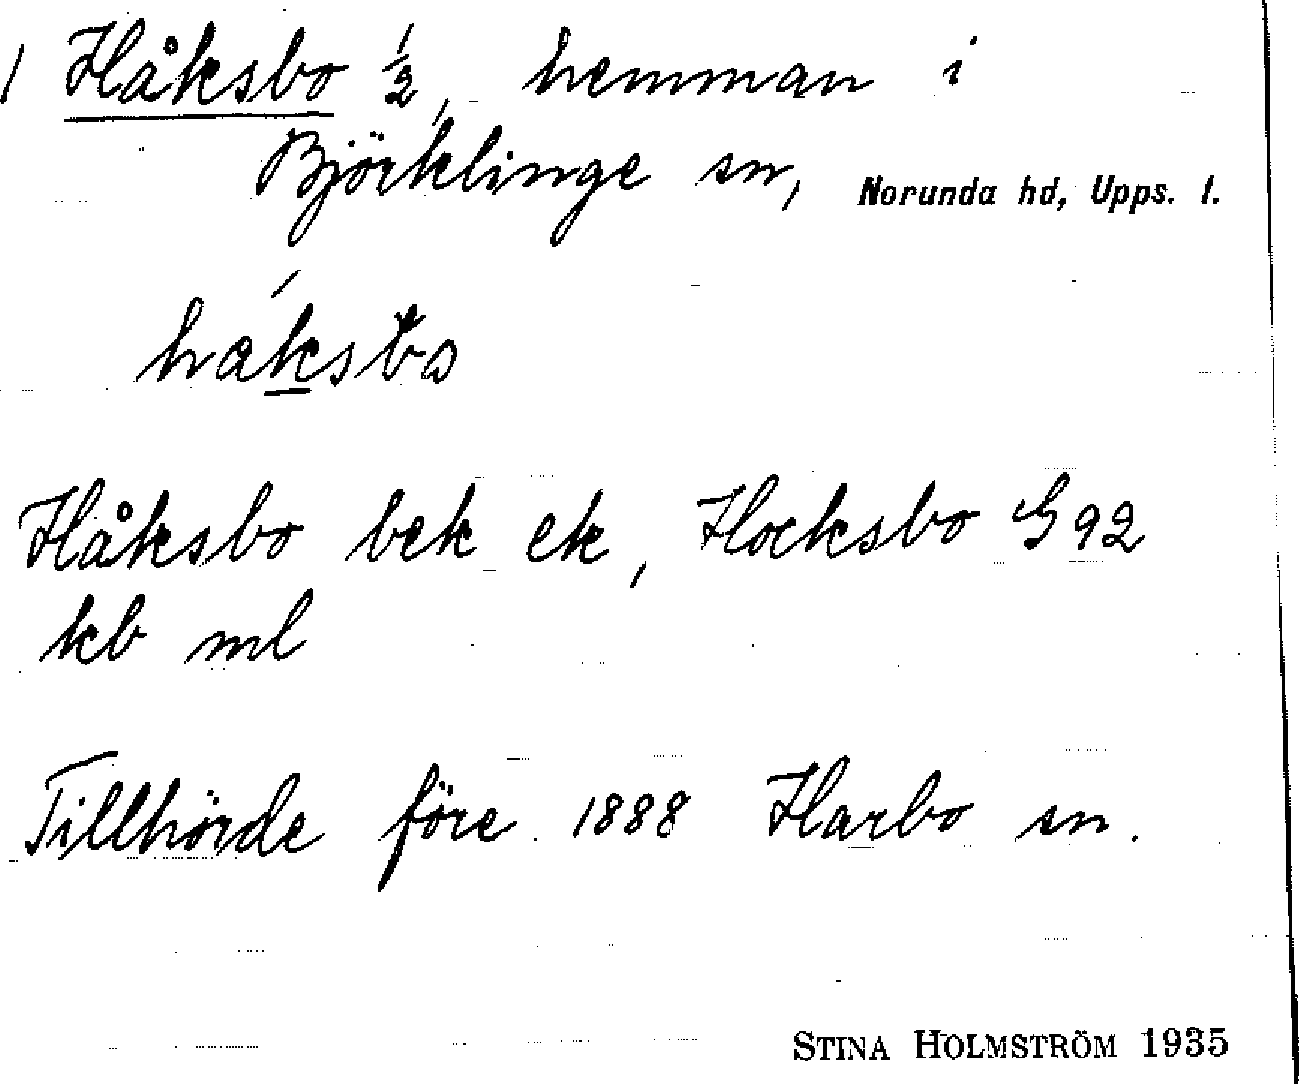 1 Håksbo 1/2, hemman i
Björklinge sn, Norunda hd, Upps. l.
håksbo
Håksbo bek ek, Hocksbo G92
kb ml
Tillhörde före 1888 Harbo sn.
STINA HOLMSTRÖM 1935